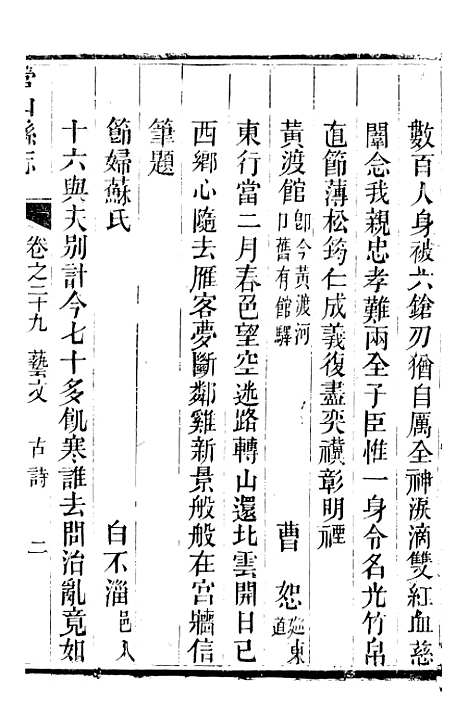 數百人身被六鎗刃猶自厲全神淚滴雙紅血慈
闈念我親忠孝難兩全子臣惟一身令名光竹帛
直節薄松筠仁成義復盡奕禩彰明禋
黃渡館即今黃渡河口舊有館驛 曹恕廵東道
東行當二月春邑望空迷路轉山還北雲開日已
西鄉心隨去雁客夢斷鄰雞新景般般在宮牆信
筆題
節婦蘇氏 白不淄邑人
十六與夫別計今七十多飢寒誰去問治亂竟如
營山縣志 卷之二十九 藝文 古詩 二